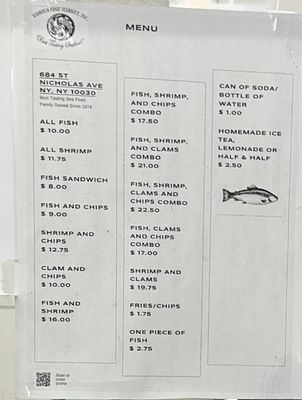 FAMOUS FISH MARKET, INC.
Best Tasting Seafood
MENU
684 ST
NICHOLAS AVE
NY, NY 10030
Best Tasting Sea Food
Family Owned Since 1974
ALL FISH
$ 10.00
ALL SHRIMP
$ 11.75
FISH SANDWICH
$ 8.00
FISH AND CHIPS
$ 9.00
SHRIMP AND
CHIPS
$ 12.75
CLAM AND
CHIPS
$ 10.00
FISH AND
SHRIMP
$ 16.00
Scan to
order
online
FISH, SHRIMP,
AND CHIPS
COMBO
$ 17.50
FISH, SHRIMP,
AND CLAMS
COMBO
$ 21.00
FISH, SHRIMP,
CLAMS AND
CHIPS COMBO
$ 22.50
FISH, CLAMS
AND CHIPS
COMBO
$ 17.00
SHRIMP AND
CLAMS
$ 19.75
FRIES/CHIPS
$ 1.75
ONE PIECE OF
FISH
$ 2.75
CAN OF SODA/
BOTTLE OF
WATER
$ 1.00
HOMEMADE ICE
TEA,
LEMONADE OR
HALF & HALF
$ 2.50